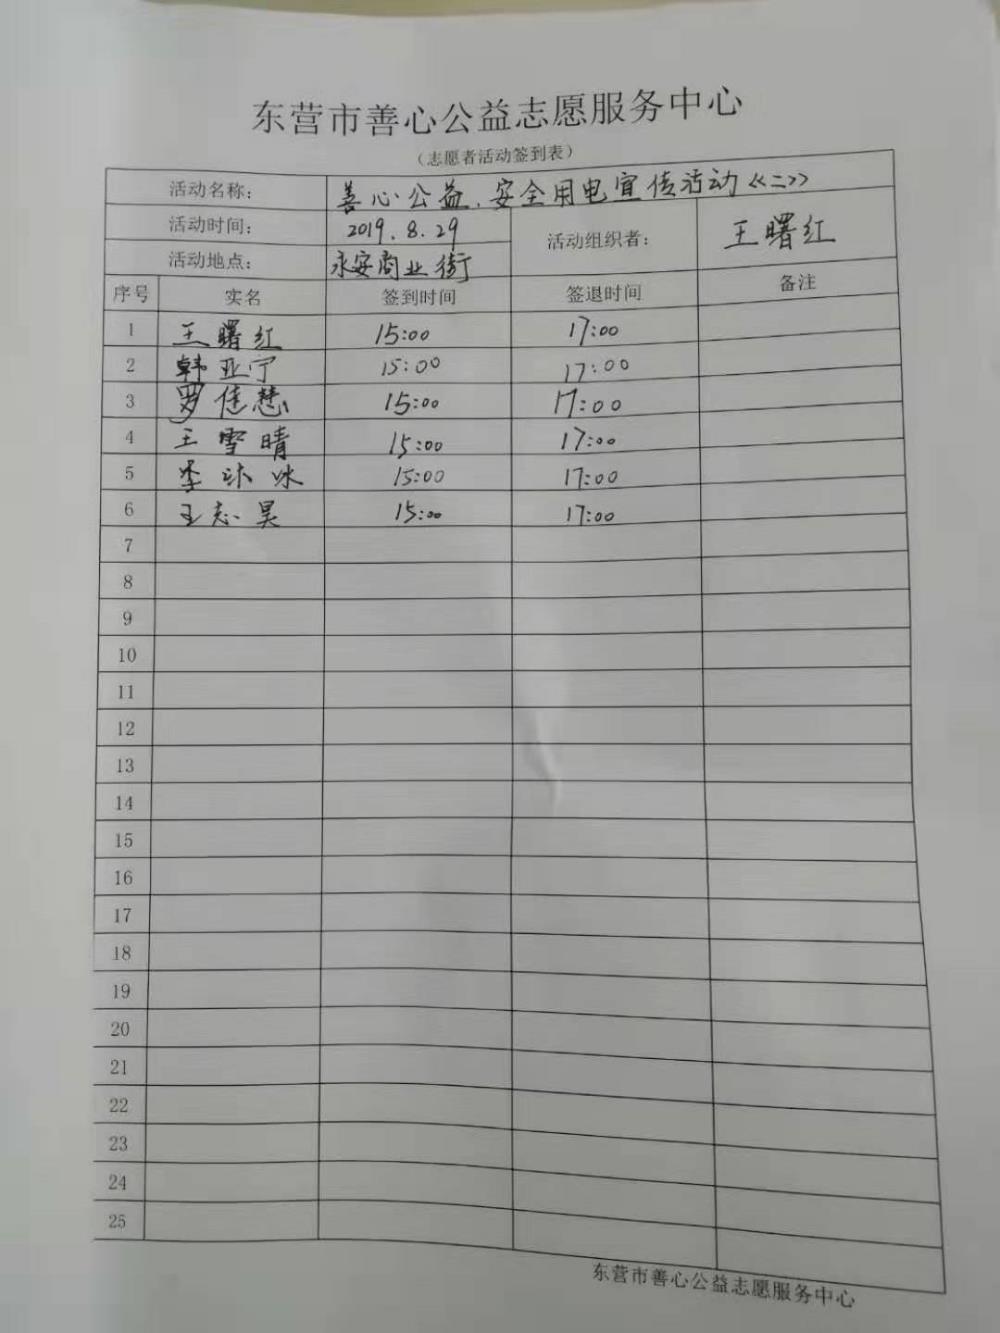 东营市善心公益志愿服务中心
（志愿者活动签到表）
活动名称： 善心公益、安全用电宣传活动《二》
活动时间： 2019.8.29 活动组织者： 王曙红
活动地点： 永安商业街
序号 实名 签到时间 签退时间 备注
1 王曙红 15:00 17:00
2 韩亚宁 15:00 17:00
3 罗佳慧 15:00 17:00
4 王雪晴 15:00 17:00
5 李 15:00 17:00
6 王志昊 15:00 17:00
7
8
9
10
11
12
13
14
15
16
17
18
19
20
21
22
23
24
25
东营市善心公益志愿服务中心